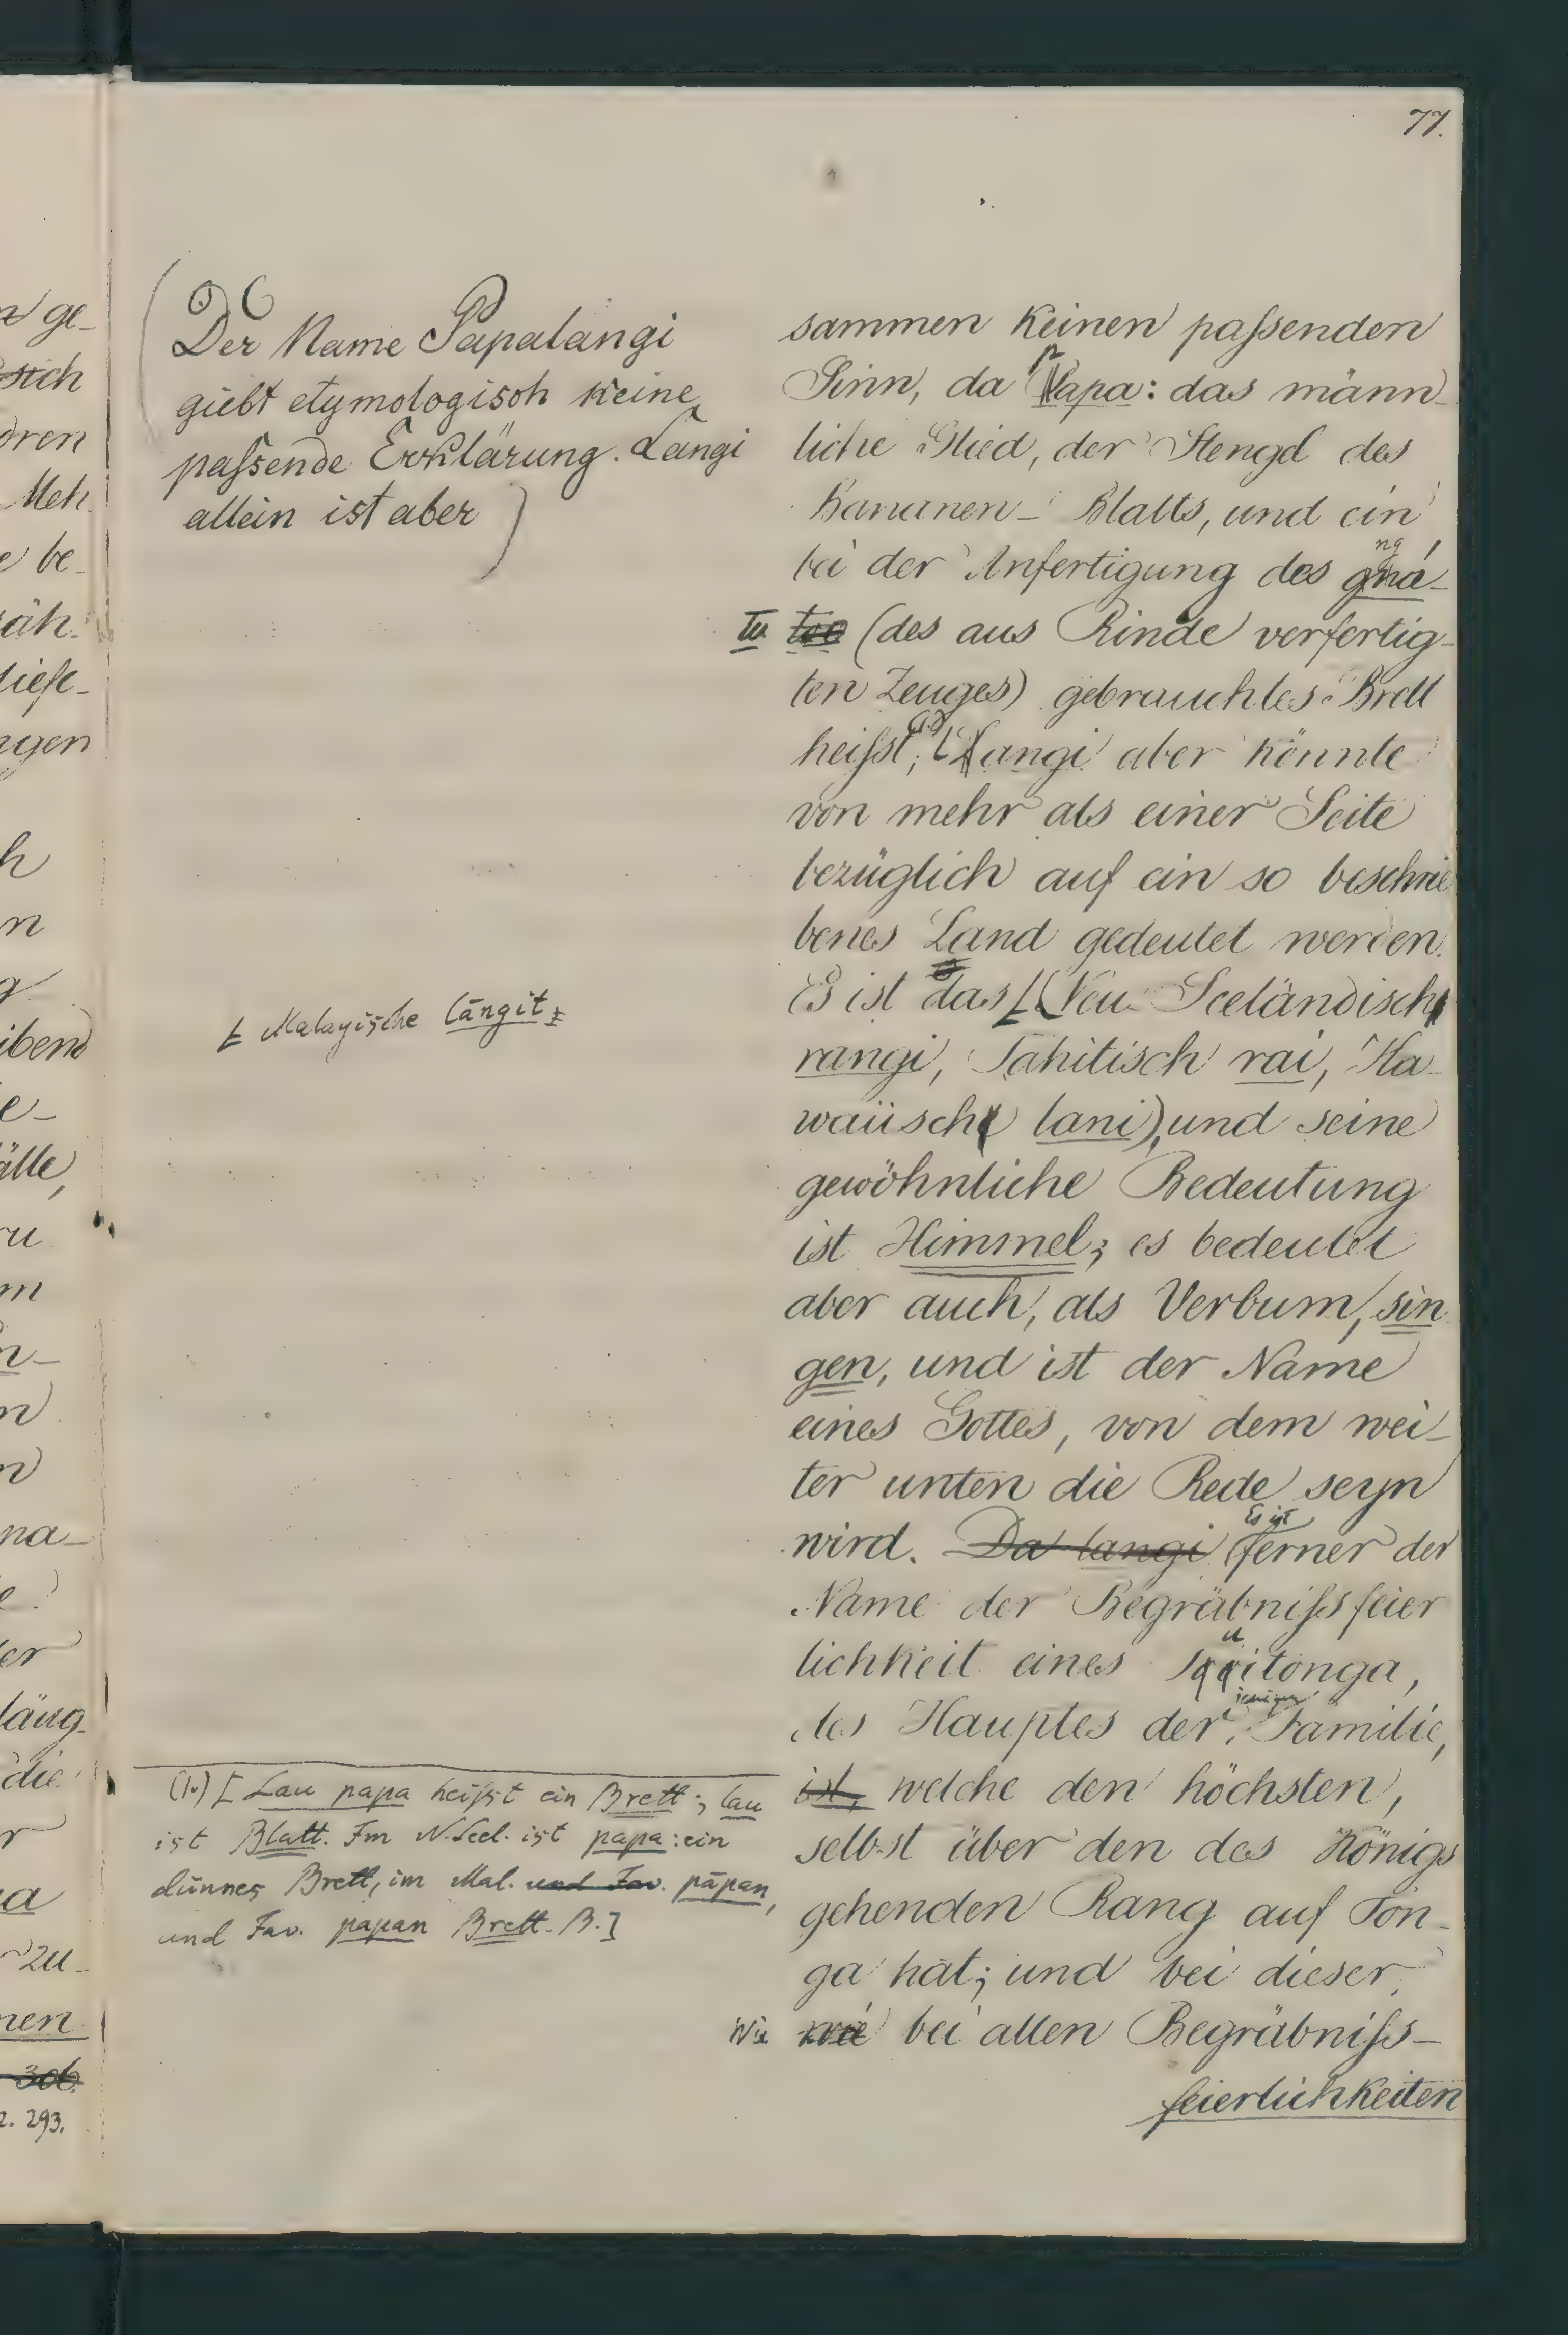 77.
(Der Name Papalangi
giebt etymologisch keine
paſsende Erklärung. Langi
allein ist aber)
sammen keinen paſsenden
Sinn, da papa: das männ-
liche Glied, der Stengel des
Bananen-Blatts, und ein
bei der Anfertigung des gná-
ng
tu too (des aus Rinde verfertig-
ten Zeuges) gebrauchtes Brett
heiſst; langi aber könnte
von mehr als einer Seite
bezüglich auf ein so beschrie
benes Land gedeutet werden.
Es ist das [(Neu-Seeländisch
[ Malayische lāngit;
rangi, Tahitisch rai, Ha-
waiisch lani), und seine
gewöhnliche Bedeutung
ist Himmel; es bedeutet
aber auch, als Verbum, sin
gen, und ist der Name
eines Gottes, von dem wei-
ter unten die Rede seyn
wird. Da langi Es ist ferner der
Name der Begräbniſsfeier
lichkeit eines Tuitonga,
des Hauptes derjenigen Familie,
ist, welche den höchsten,
selbst über den des Königs
gehenden Rang auf Ton-
ga hat; und bei dieser,
wie wie bei allen Begräbniſs-
feierlichkeiten
(1.) [Lau papa heiſst ein Brett; lau
ist Blatt. Im N.Seel. ist papa: ein
dünnes Brett, im Mal. und Jav. pāpan,
und Jav. papan Brett. B.]
n ge-
sich
dren
Meh
e be-
äh-
tiefe-
ngen
h
n
g
ibend
e-
älle,
ru
m
n-
n
n
na-
e.
er
läng-
die
r
a
zu-
nen
306
2. 293.